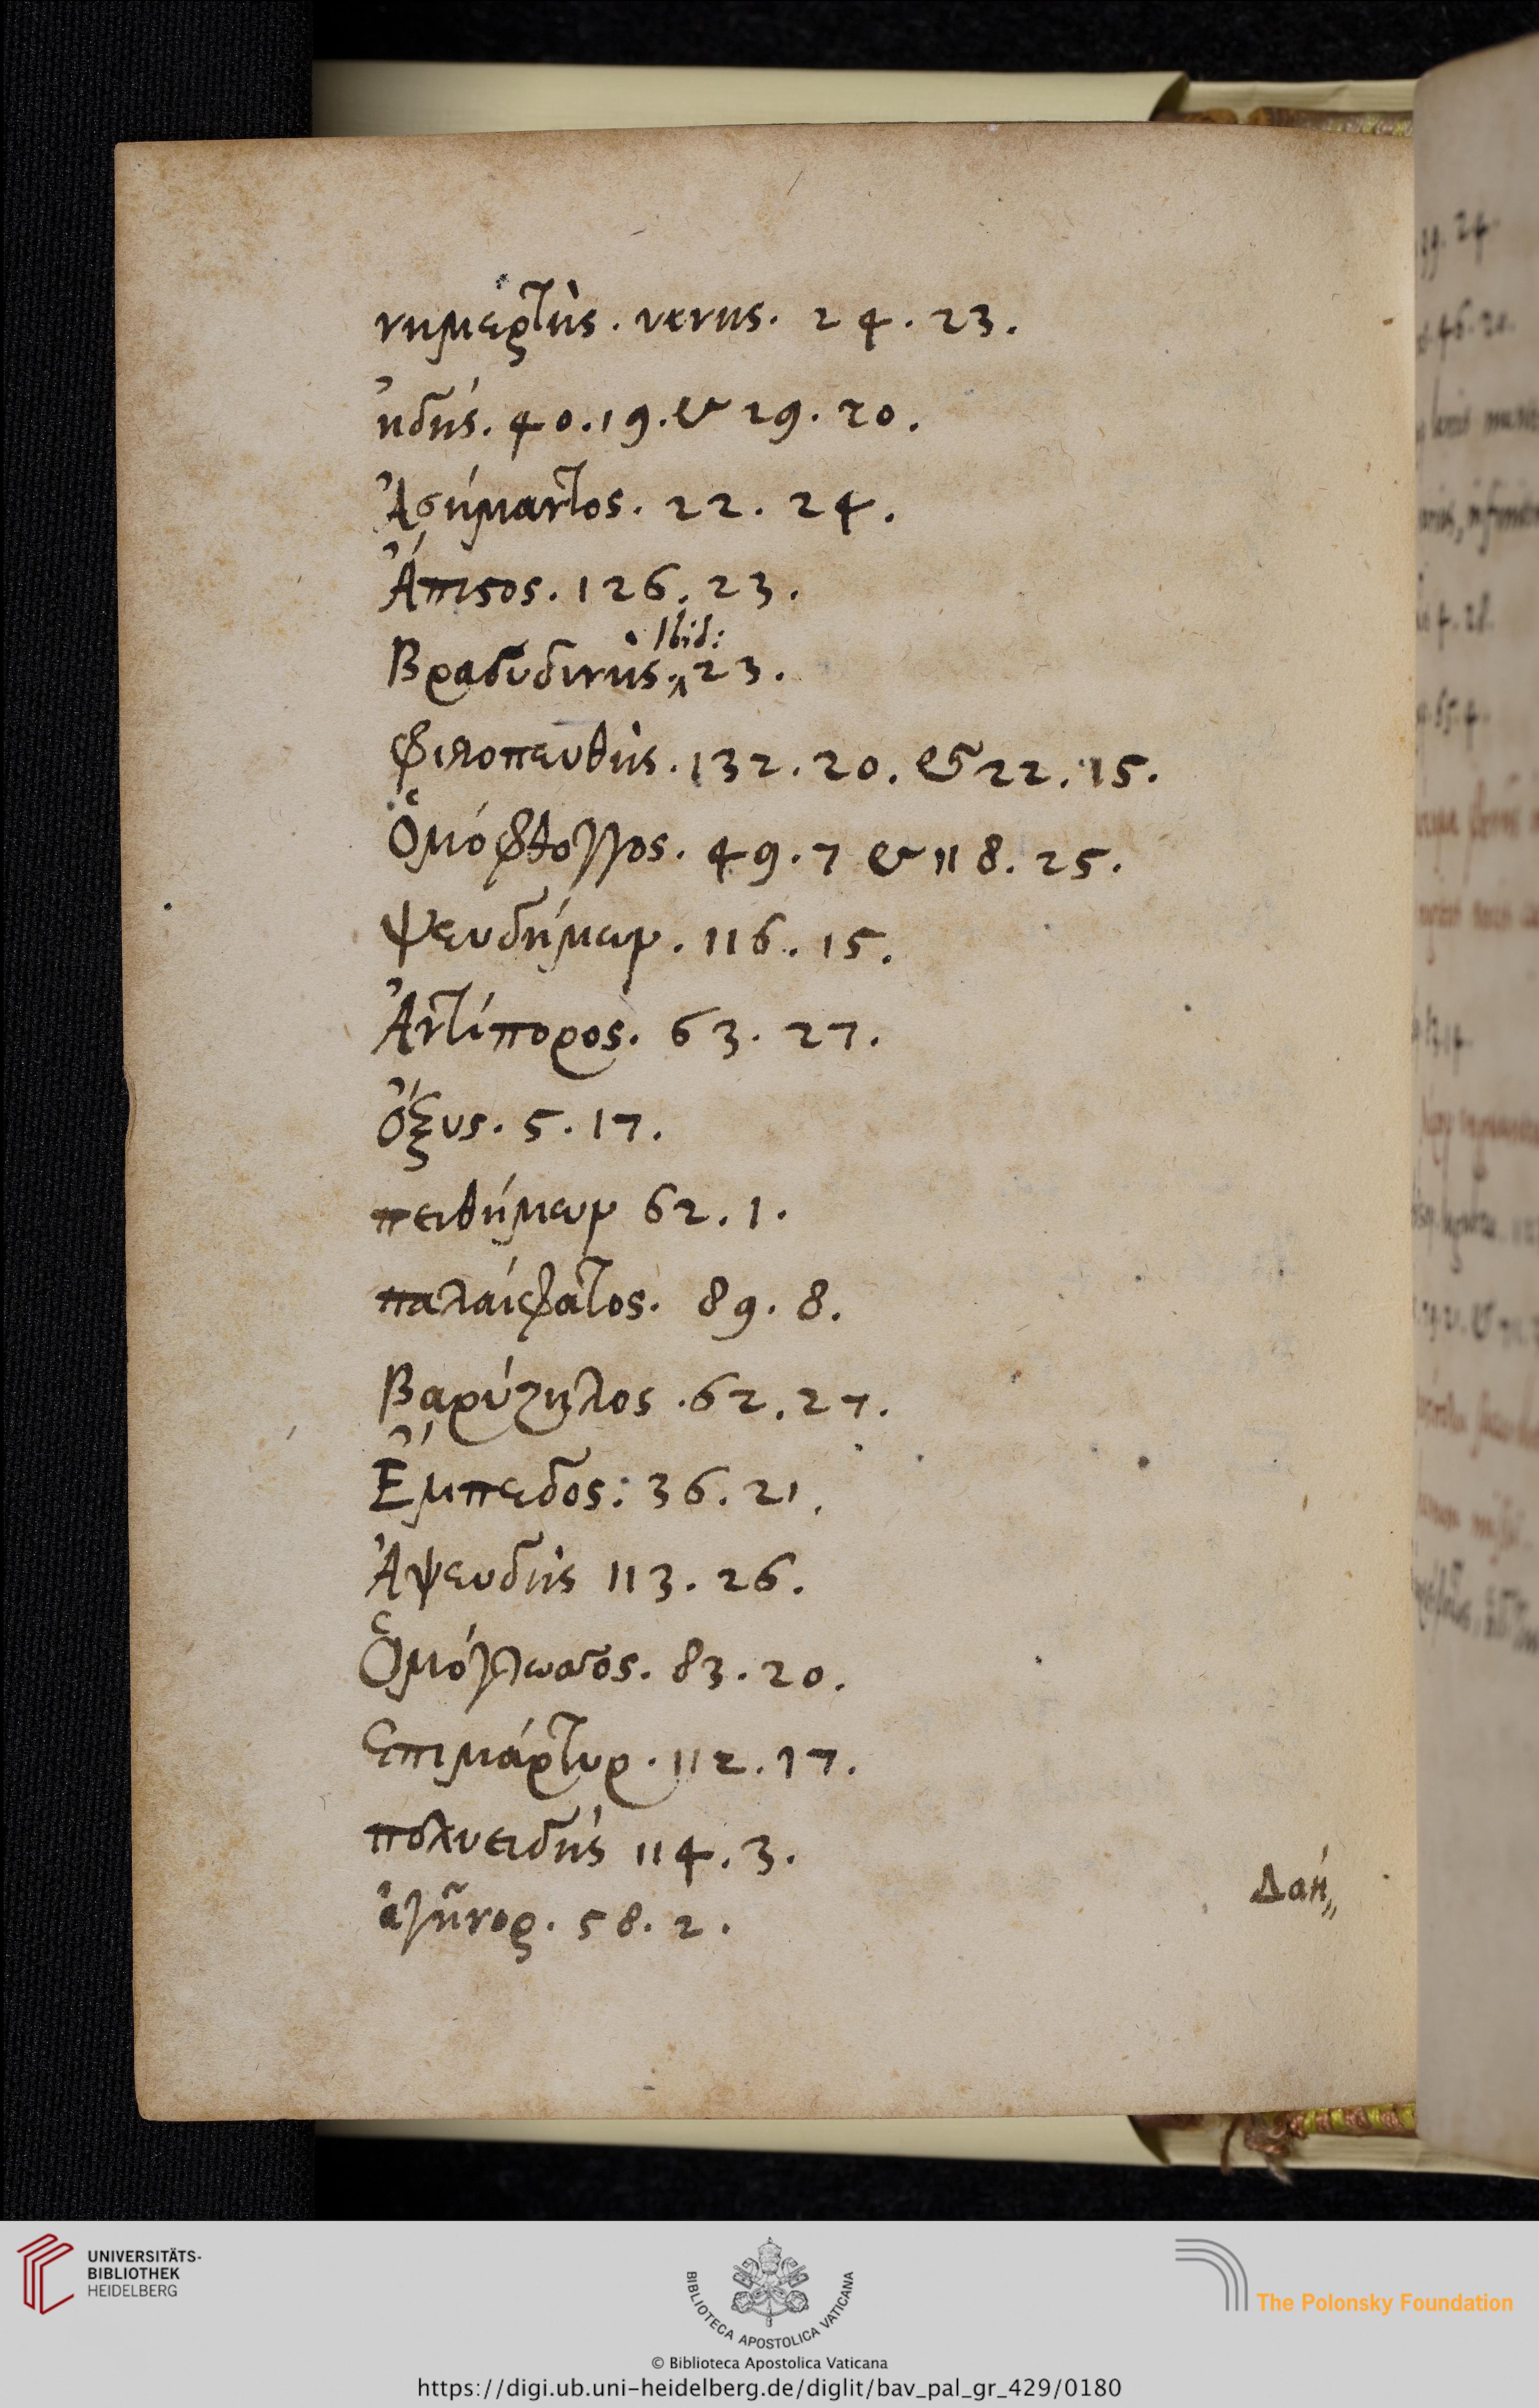 νημερτὴς. verus. 24. 23.
ἡδύς. 40. 19. & 29. 20.
Ἀσήμαντος. 22. 24.
Ἄπιϛος. 126. 23.
Ibid:
Βραδυδινὴς. ‸ 23.
φιλοπευθὴς. 132. 20. & 22. 15.
Ὁμόφθογγος. 49. 7 & 118. 25.
ψευδήμων. 116. 15.
Ἀντίπορος. 63. 27.
ὄξυς. 5. 17.
πειθήμων 62. 1.
παλαίφατος. 89. 8.
Βαρύζηλος. 62. 27.
Ἔμπεδος: 36. 21.
Ἀψευδὴς 113. 26.
Ὁμόγλωσσος. 83. 20.
Επιμάρτυρ. 112. 17.
πολυειδὴς 114. 3.
ἀγῆνορ. 58. 2.
Δαή„
UNIVERSITÄTS-
BIBLIOTHEK
HEIDELBERG
BIBLIOTECA APOSTOLICA VATICANA
© Biblioteca Apostolica Vaticana
The Polonsky Foundation
https://digi.ub.uni-heidelberg.de/diglit/bav_pal_gr_429/0180